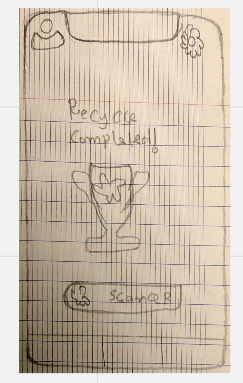 Recycle
Completed!
Scan QR